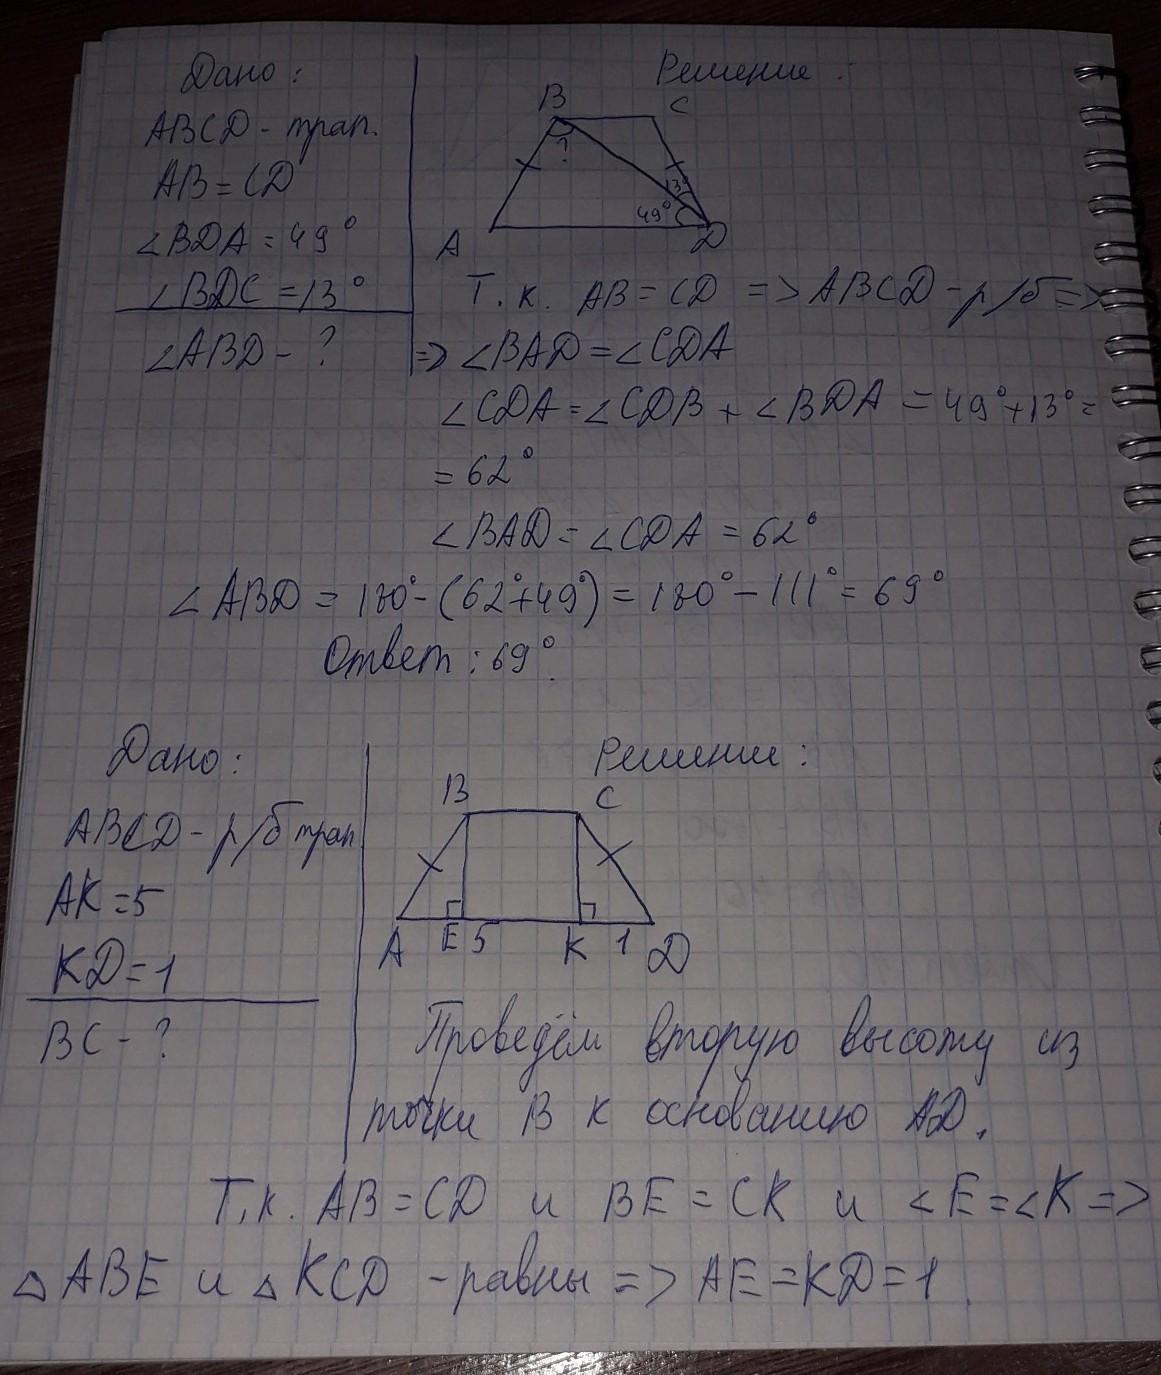 Дано:
АВСD - трап.
АВ = СD
∠BDA = 49°
∠BDC = 13°
∠ABD - ?
Решение:
B C
?
13°
49°
A D
Т. к. АВ = СD => ABCD - р/б =>
=> ∠BAD = ∠CDA
∠CDA = ∠CDB + ∠BDA = 49° + 13° =
= 62°
∠BAD = ∠CDA = 62°
∠ABD = 180° - (62° + 49°) = 180° - 111° = 69°
Ответ: 69°.
Дано:
ABCD - р/б трап
AK = 5
KD = 1
BC - ?
Решение:
B C
A E 5 K 1 D
Проведём вторую высоту из
точки В к основанию AD.
Т.к. АВ = CD и BE = CK и ∠E = ∠K =>
△ ABE и △ KCD - равны => AE = KD = 1.